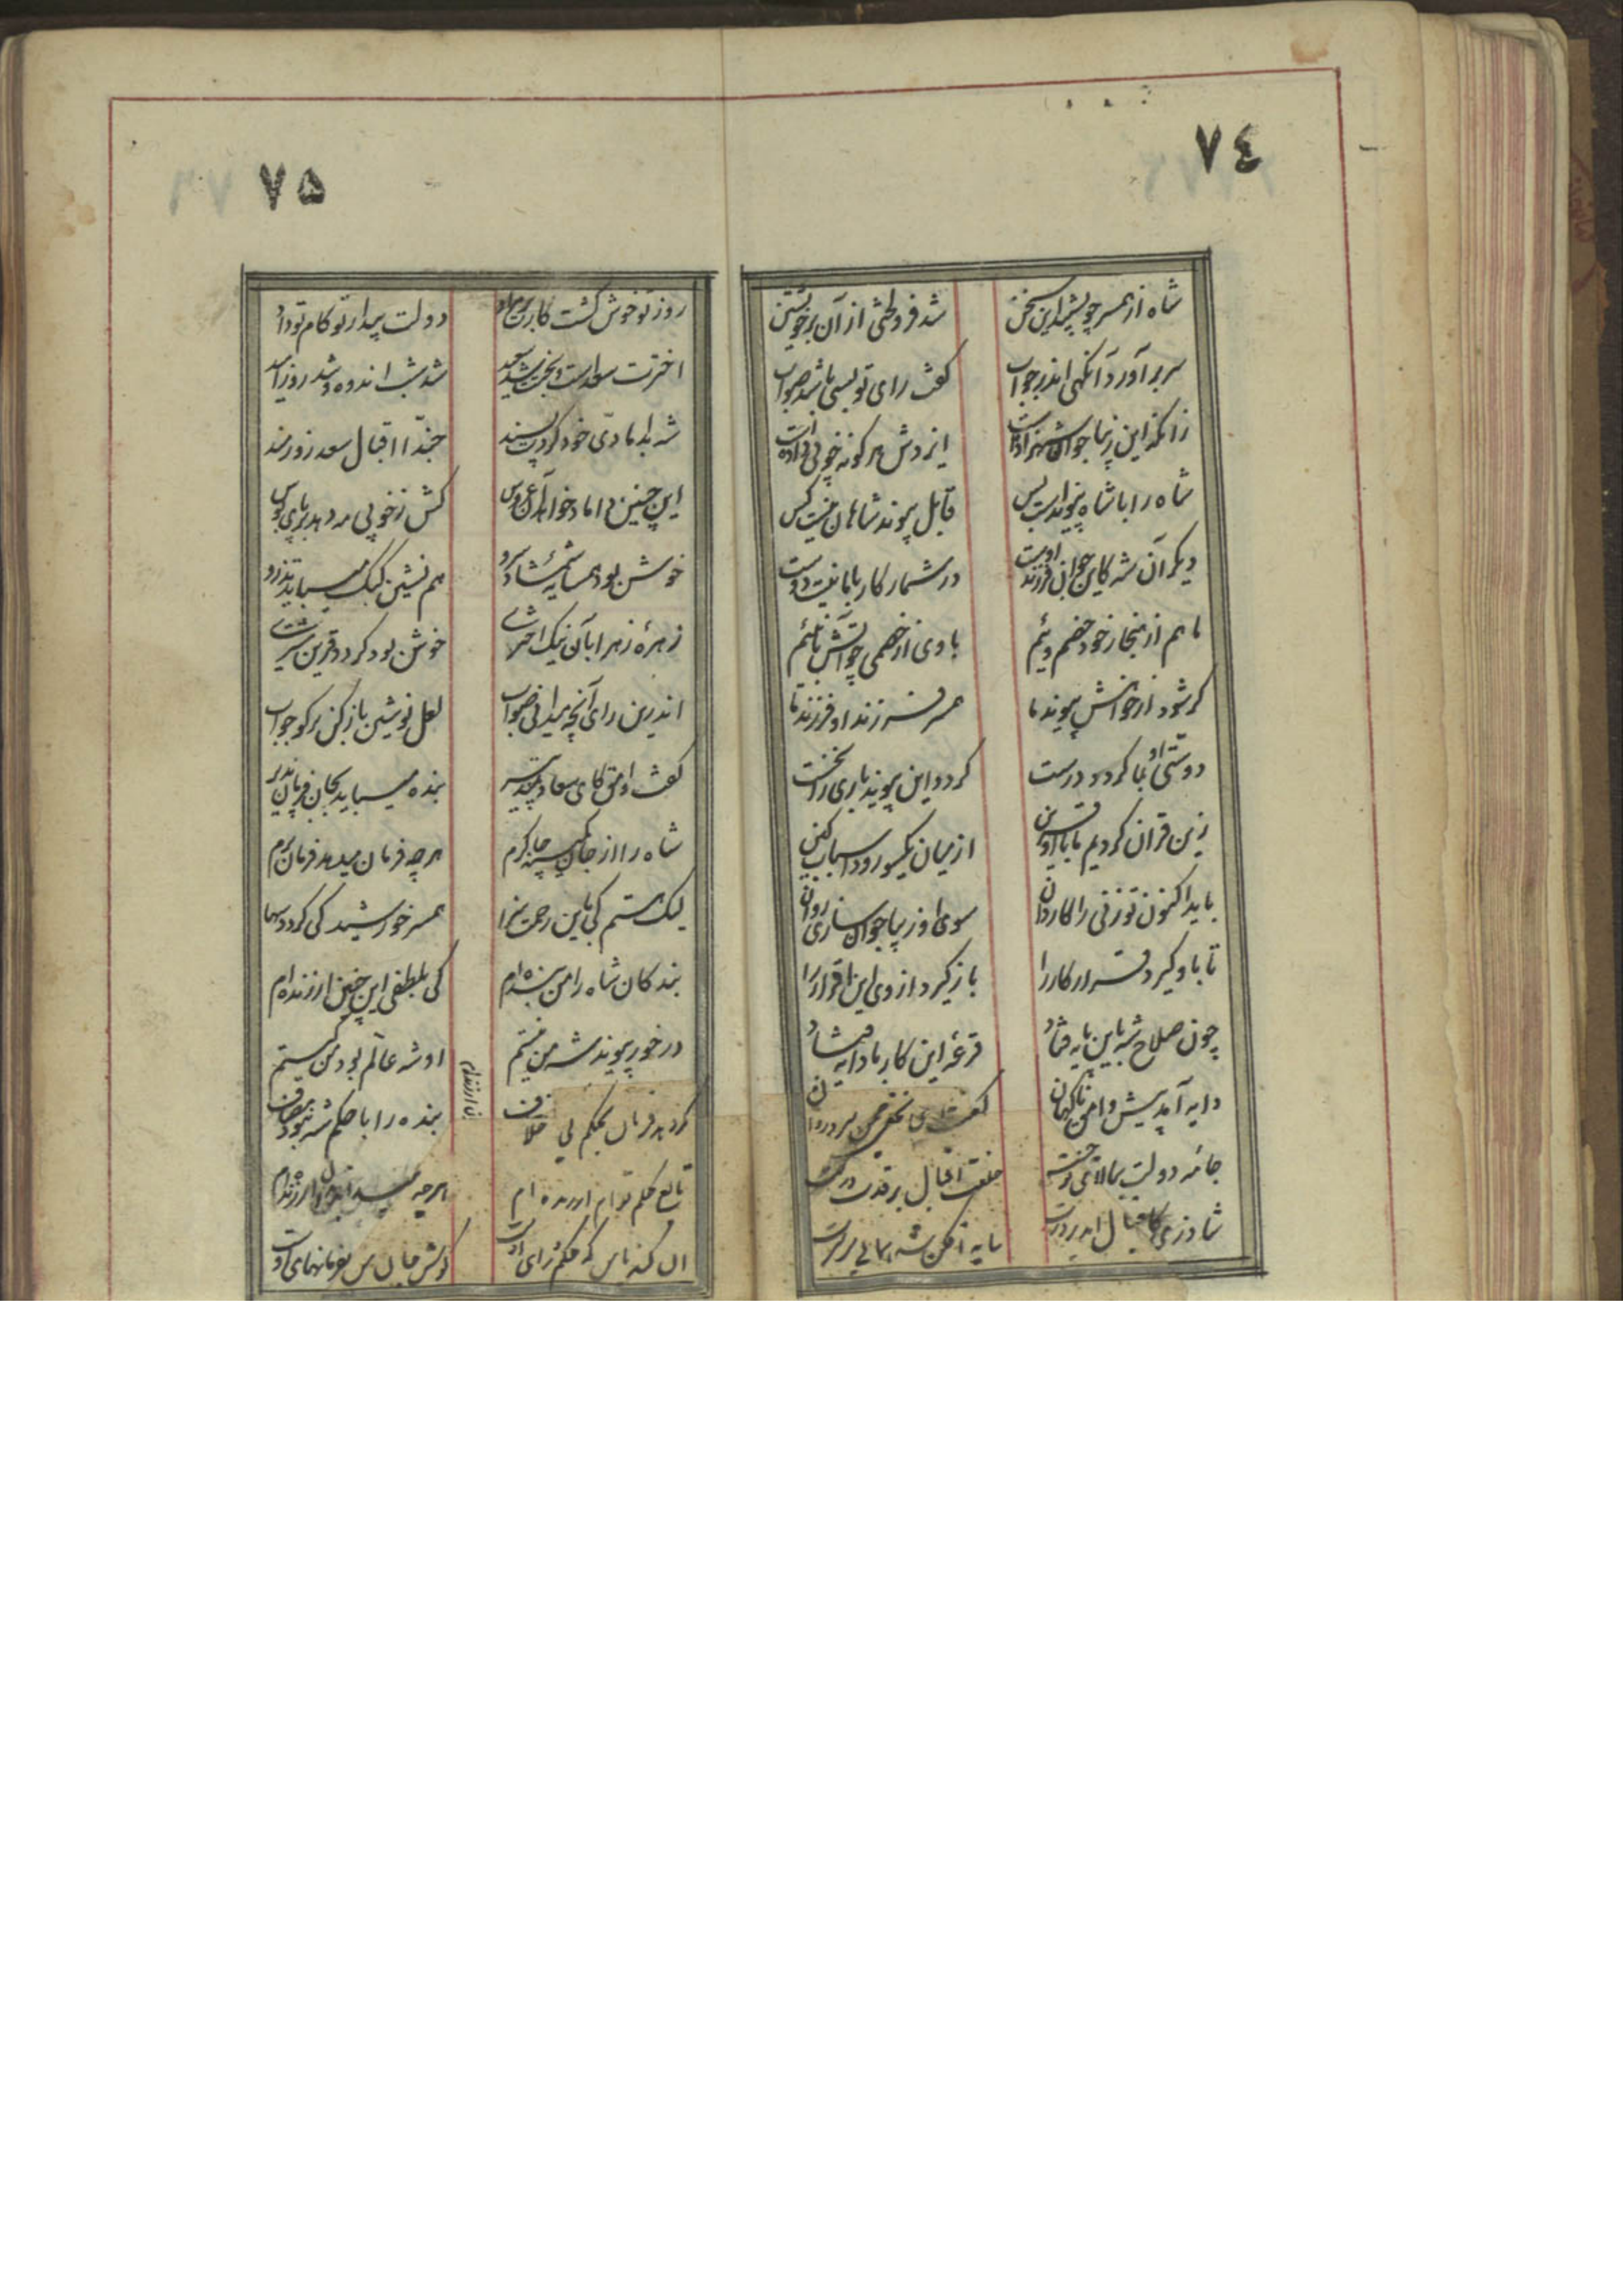 ٧٤
شاه از همسر چو بشنید این سخن
شد فرو لختی از آن بر خویشتن
سر برآورد آنگهی اندر جواب
گفت رای تو بسی باشد صواب
زانکه این زیبا جوان شهزاده است
ایزدش هر گونه خوبی داده است
شاه را با شاه پیوند است بس
قابل پیوند شاهان نیست کس
دیگر آن شه کاین جوان فرزند اوست
در شمار کار با ما نیست دوست
ما هم از هنجار خود خصم ویئم
با وی از خصمی چو آتش با نئیم
گر شود از خواهش پیوند ما
همسر فرزند او فرزند ما
دوستی او بما گردد درست
گردد این پیوند یاری را نخست
زین قران گردیم ما با او قرین
از میان یکسو رود اسباب کین
باید اکنون تو زنی را کاردان
سوی او زیبا جوان سازی روان
تا با و گیرد قرار کار را
باز گیرد از وی این اقرار را
چون صلاح شه باین پایه فتاد
قرعهٔ این کار با دایه فتاد
دایه آمد پیش وامق ناگهان
گفت
جامه دولت ببالای تو
خلعت اقبال بر قدت
شاد زی کاقبال اندر
سایه افکن شد همائی بر سرت
٧۵
روز تو خوش گشت کارت بر مراد
دولت بیدار تو کام تو داد
اخترت سعد است و بخت سعید
شد شب اندوه و شد روز امید
شه بدامادی خود کردت پسند
حبّذا اقبال سعد زورمند
این چنین داماد خواهد آن عروس
کش ز خوبی مه دهد بر پای بوس
خوش بود همسایهٔ شمشاد سرو
هم نشین کبک میباید تذرو
زهرهٔ زهرا بآن نیک اختری
خوش بود گردد قرین مشتری
اندرین رای آنچه میدانی صواب
لعل نوشین باز کن بر گو جواب
گفت وامق کای سعادتمند پیر
بنده میباید بجان فرمان پذیر
شاه را از جان کمینه چاکرم
هر چه فرمان میدهد فرمان برم
لیک هستم کی باین رحمت سزا
همسر خورشید کی گردد سها
بندگان شاه را من بنده ام
کی بلطفی این چنین ارزنده ام
در خور پیوند شه من نیستم
او شه عالم بود من کیستم
گر دهد فرمان بحکم بی خلاف
بنده را با حکم شه نبود مصاف
تابع حکم توام ارزنده ام
هر چه
آن کند یا من که حکم و رای اوست
گوش جان من بفرمانهای اوست